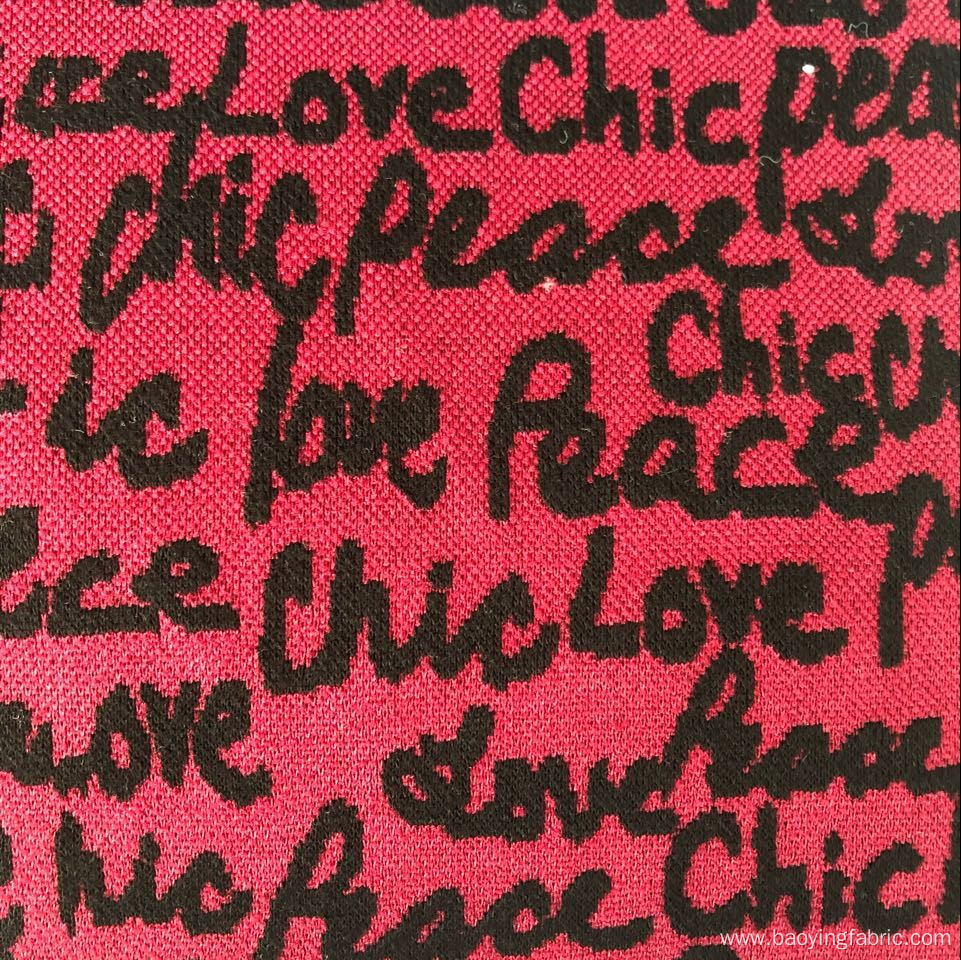 Love Chic pea
chic peace Lo
Chic
ic love Peace
ce Chic Love P
ove Love Peace
hic Peace Chic
www.baoyingfabric.com